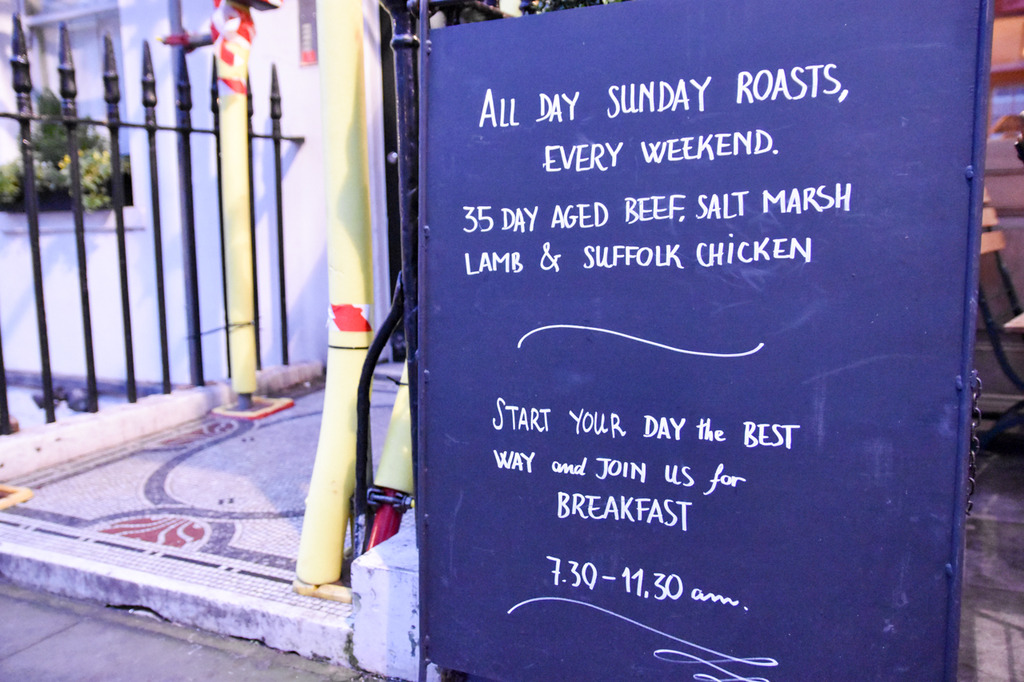 ALL DAY SUNDAY ROASTS,
EVERY WEEKEND.
35 DAY AGED BEEF, SALT MARSH
LAMB & SUFFOLK CHICKEN
START YOUR DAY the BEST
WAY and JOIN US for
BREAKFAST
7.30 - 11.30 am.